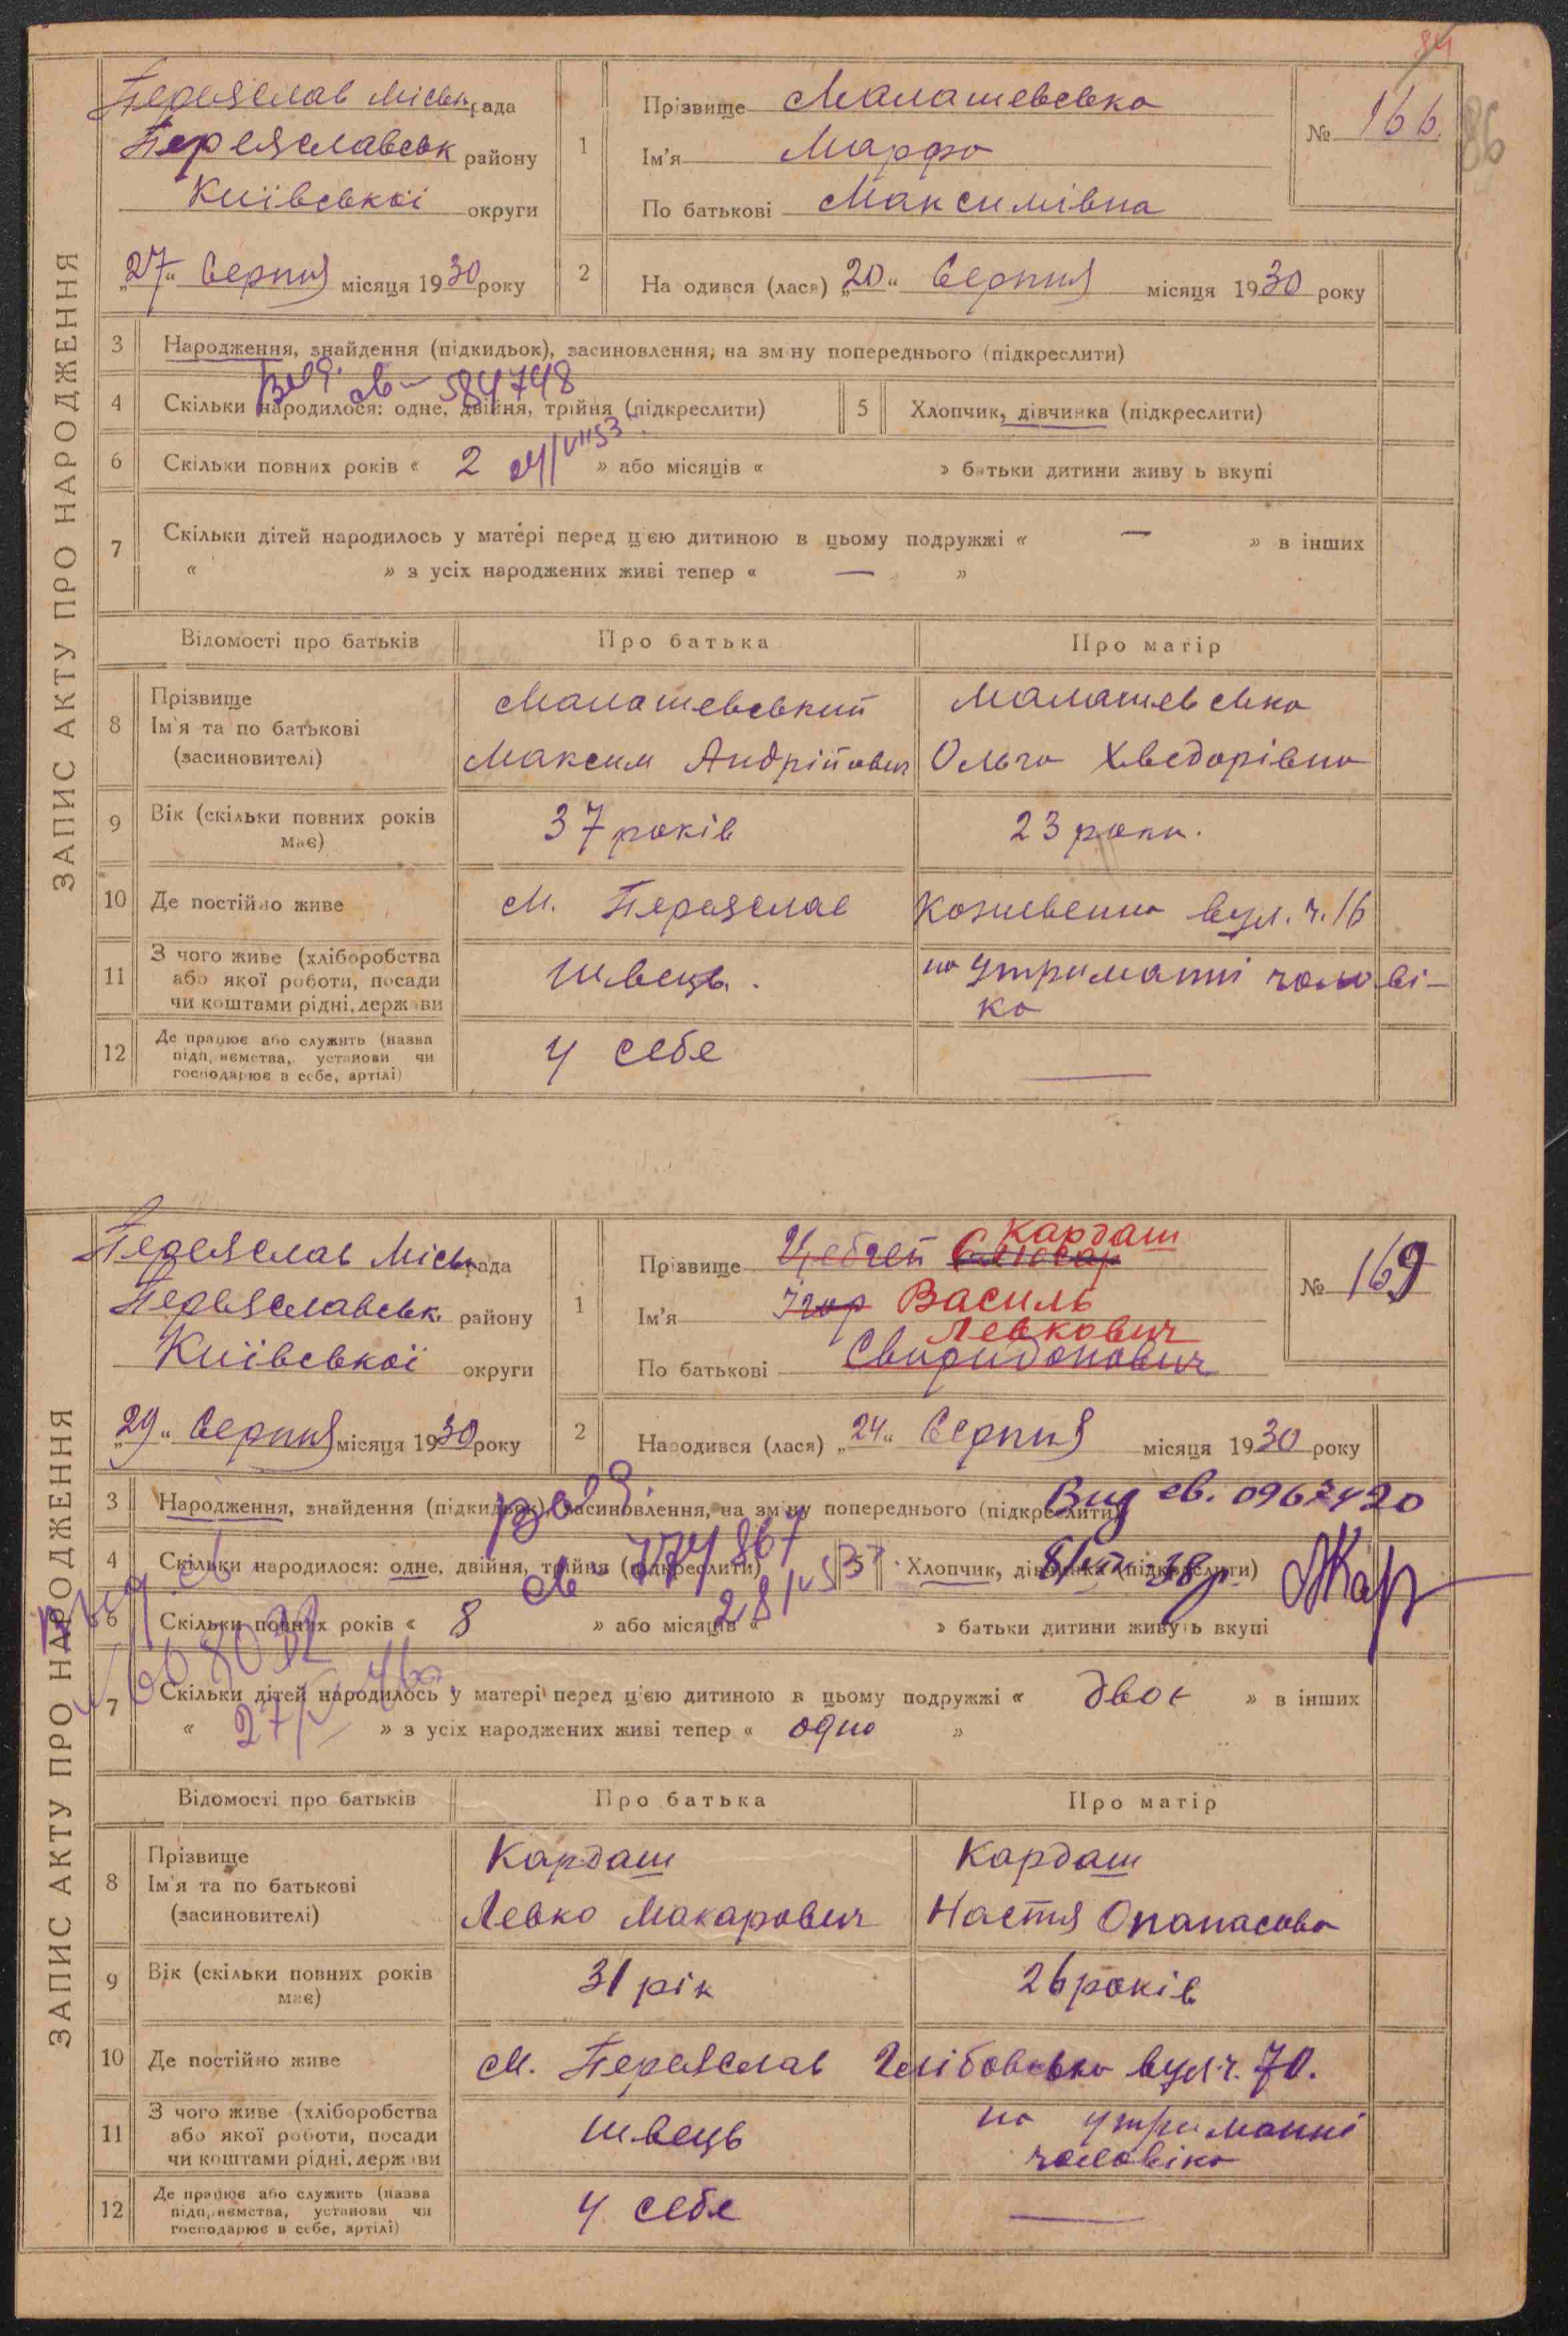 84
86
ЗАПИС АКТУ ПРО НАРОДЖЕННЯ
Переяслав Міськ рада
Переяславськ району
Київської округи
„27“ Серпня місяця 1930 року
1
Прізвище Малашевська
Ім'я Марфа
По батькові Максимівна
№ 166.
2
Народився (лася) „20“ Серпня місяця 1930 року
3 Народження, знайдення (підкидьок), засиновлення, на зміну попереднього (підкреслити)
Вид. св– 584748
4 Скільки народилося: одне, двійня, трійня (підкреслити)
5 Хлопчик, дівчинка (підкреслити)
6 Скільки повних років « 2 » або місяців « » батьки дитини живуть вкупі
24/VII 53
7 Скільки дітей народилось у матері перед цією дитиною в цьому подружжі « — » в інших
« » з усіх народжених живі тепер « — »
Відомості про батьків Про батька Про матір
8 Прізвище Ім'я та по батькові (засновителі)
Малашевський Малашевська
Максим Андрійович Ольга Хведорівна
9 Вік (скільки повних років має) 37 років 23 роки.
10 Де постійно живе м. Переяслав
вул. ч. 16
11 З чого живе (хліборобства або якої роботи, посади чи коштами рідні, держави
швець. на утриманні чолові-
ка
12 Де працює або служить (назва підприємства, установи чи господарює в себе, артілі)
у себе —
ЗАПИС АКТУ ПРО НАРОДЖЕННЯ
Переяслав Міськ рада
Переяславськ. району
Київської округи
„29“ Серпня місяця 1930 року
1
Кардаш
Прізвище Слюсар
Ім'я Ігор Василь
Левкович
По батькові Свиридонович
№ 169
2
Народився (лася) „24“ Серпня місяця 1930 року
3 Народження, знайдення (підкидьок), засиновлення, на зміну попереднього (підкреслити)
Вид св.
4 Скільки народилося: одне, двійня, трійня (підкреслити)
св 774867
5 Хлопчик, дівчинка (підкреслити)
6 Скільки повних років « 8 » або місяців « » батьки дитини живуть вкупі
7 Скільки дітей народилось у матері перед цією дитиною в цьому подружжі « двоє » в інших
« » з усіх народжених живі тепер « одно »
Відомості про батьків Про батька Про матір
8 Прізвище Ім'я та по батькові (засиновителі)
Кардаш Кардаш
Левко Макарович Настя Опанасова
9 Вік (скільки повних років має) 31 рік 26 років
10 Де постійно живе м. Переяслав вул. ч. 70.
11 З чого живе (хліборобства або якої роботи, посади чи коштами рідні, держави
швець на утриманні
чоловіка
12 Де працює або служить (назва підприємства, установи чи господарює в себе, артілі)
у себе —